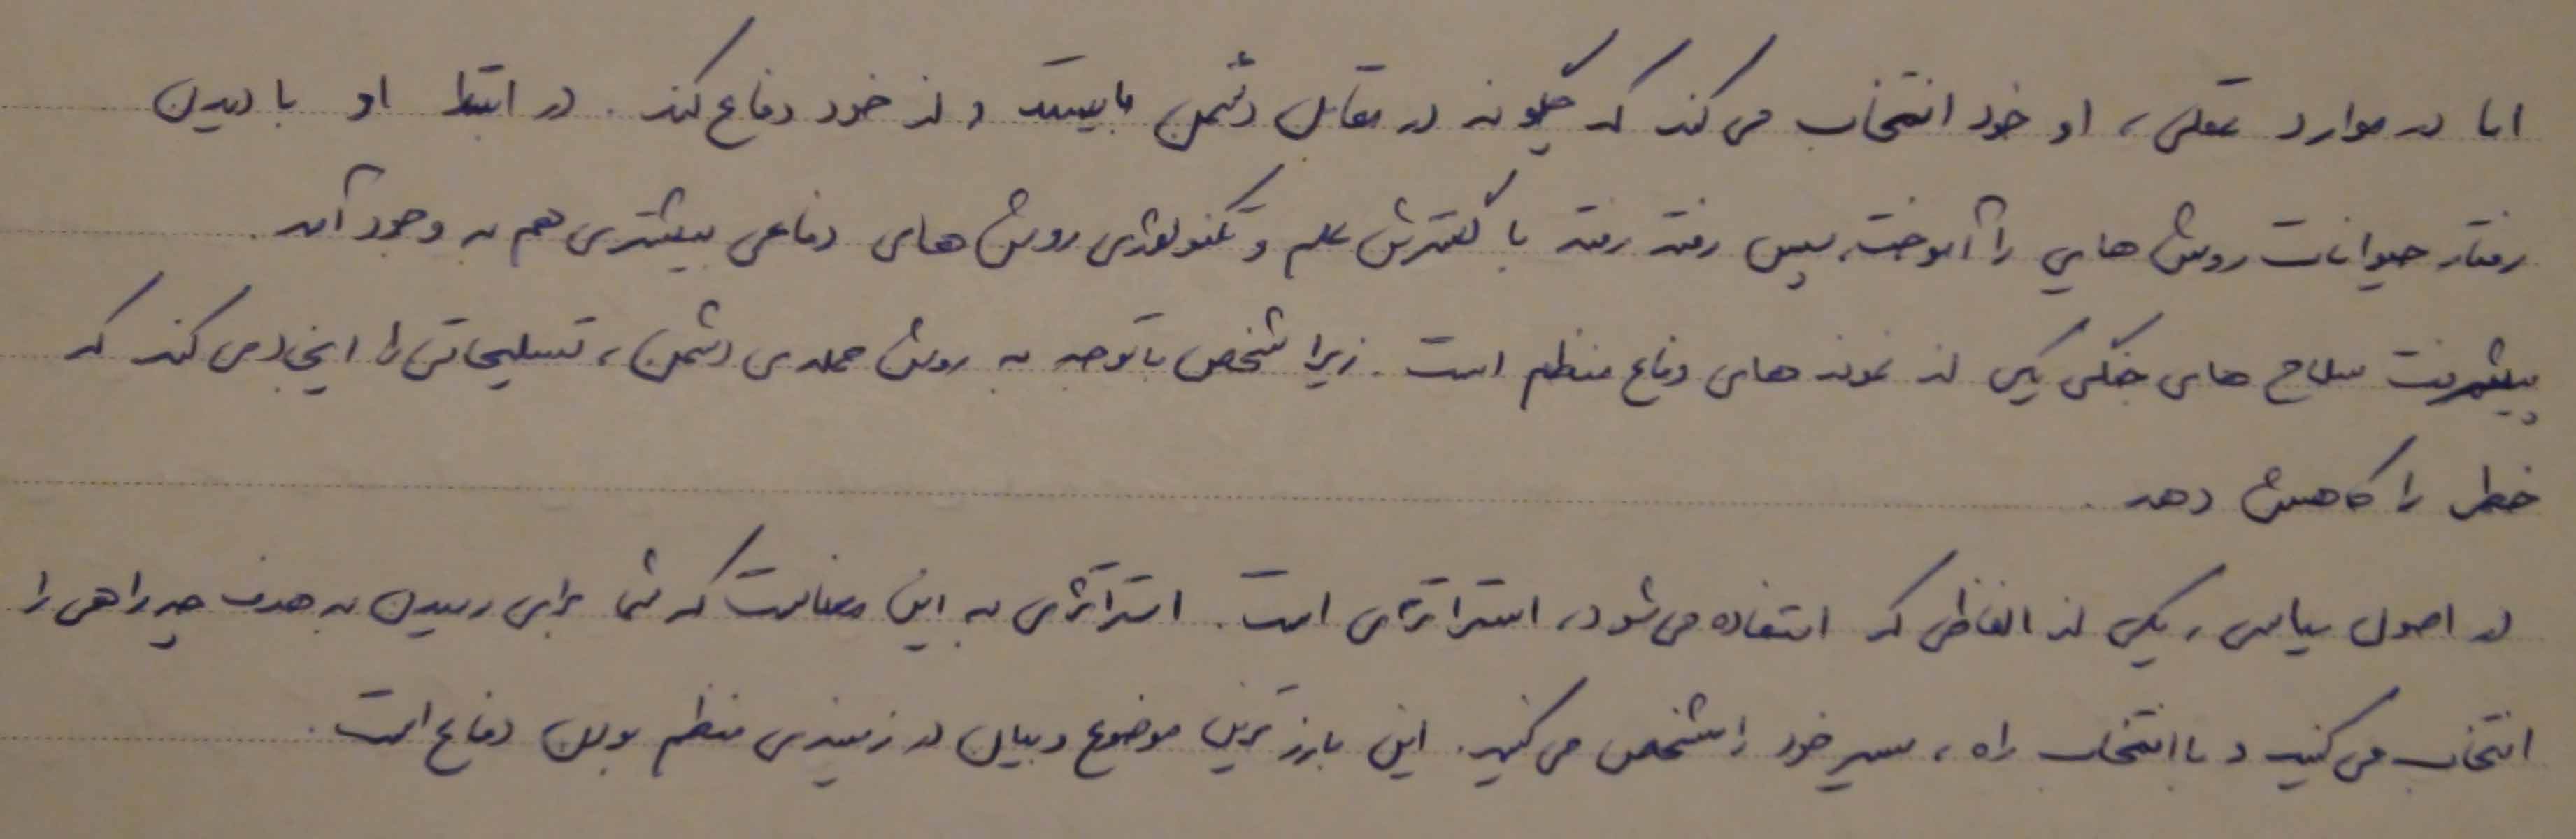 اما در موارد عقلی، او خود انتخاب می کند که چگونه در مقابل دشمن بایستد و از خود دفاع کند. در ابتدا او با دیدن
رفتار حیوانات روش هایی را آموخت، سپس رفته رفته با گسترش علم و تکنولوژی روش های دفاعی بیشتری هم به وجود آمد.
پیشرفت سلاح های جنگی یکی از نمونه های دفاع منظم است. زیرا شخص با توجه به روش حمله ی دشمن، تسلیحاتی را ایجاد می کند که
خطر را کاهش دهد.
در اصول سیاسی، یکی از الفاظی که استفاده می شود، استراتژی است. استراتژی به این معناست که شما برای رسیدن به هدف چه راهی را
انتخاب می کنید و با انتخاب راه، مسیر خود را مشخص می کنید. این بارزترین موضوع و بیان در زمینه ی منظم بودن دفاع است.